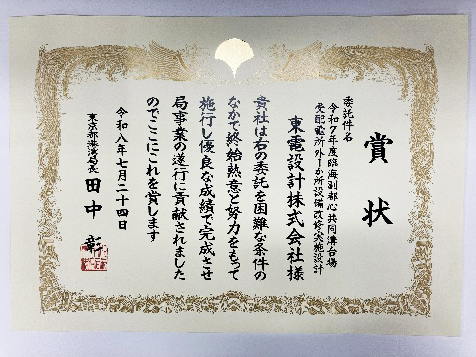 賞状
委託件名
令和7年度臨海副都心共同溝台場
受配電所外1か所設備改修実施設計
東電設計株式会社様
貴社は右の委託を困難な条件の
なかで終始熱意と努力をもって
施行し優良な成績で完成させ
局事業の遂行に貢献されました
のでここにこれを賞します
令和八年七月二十四日
東京都港湾局長 田中彰